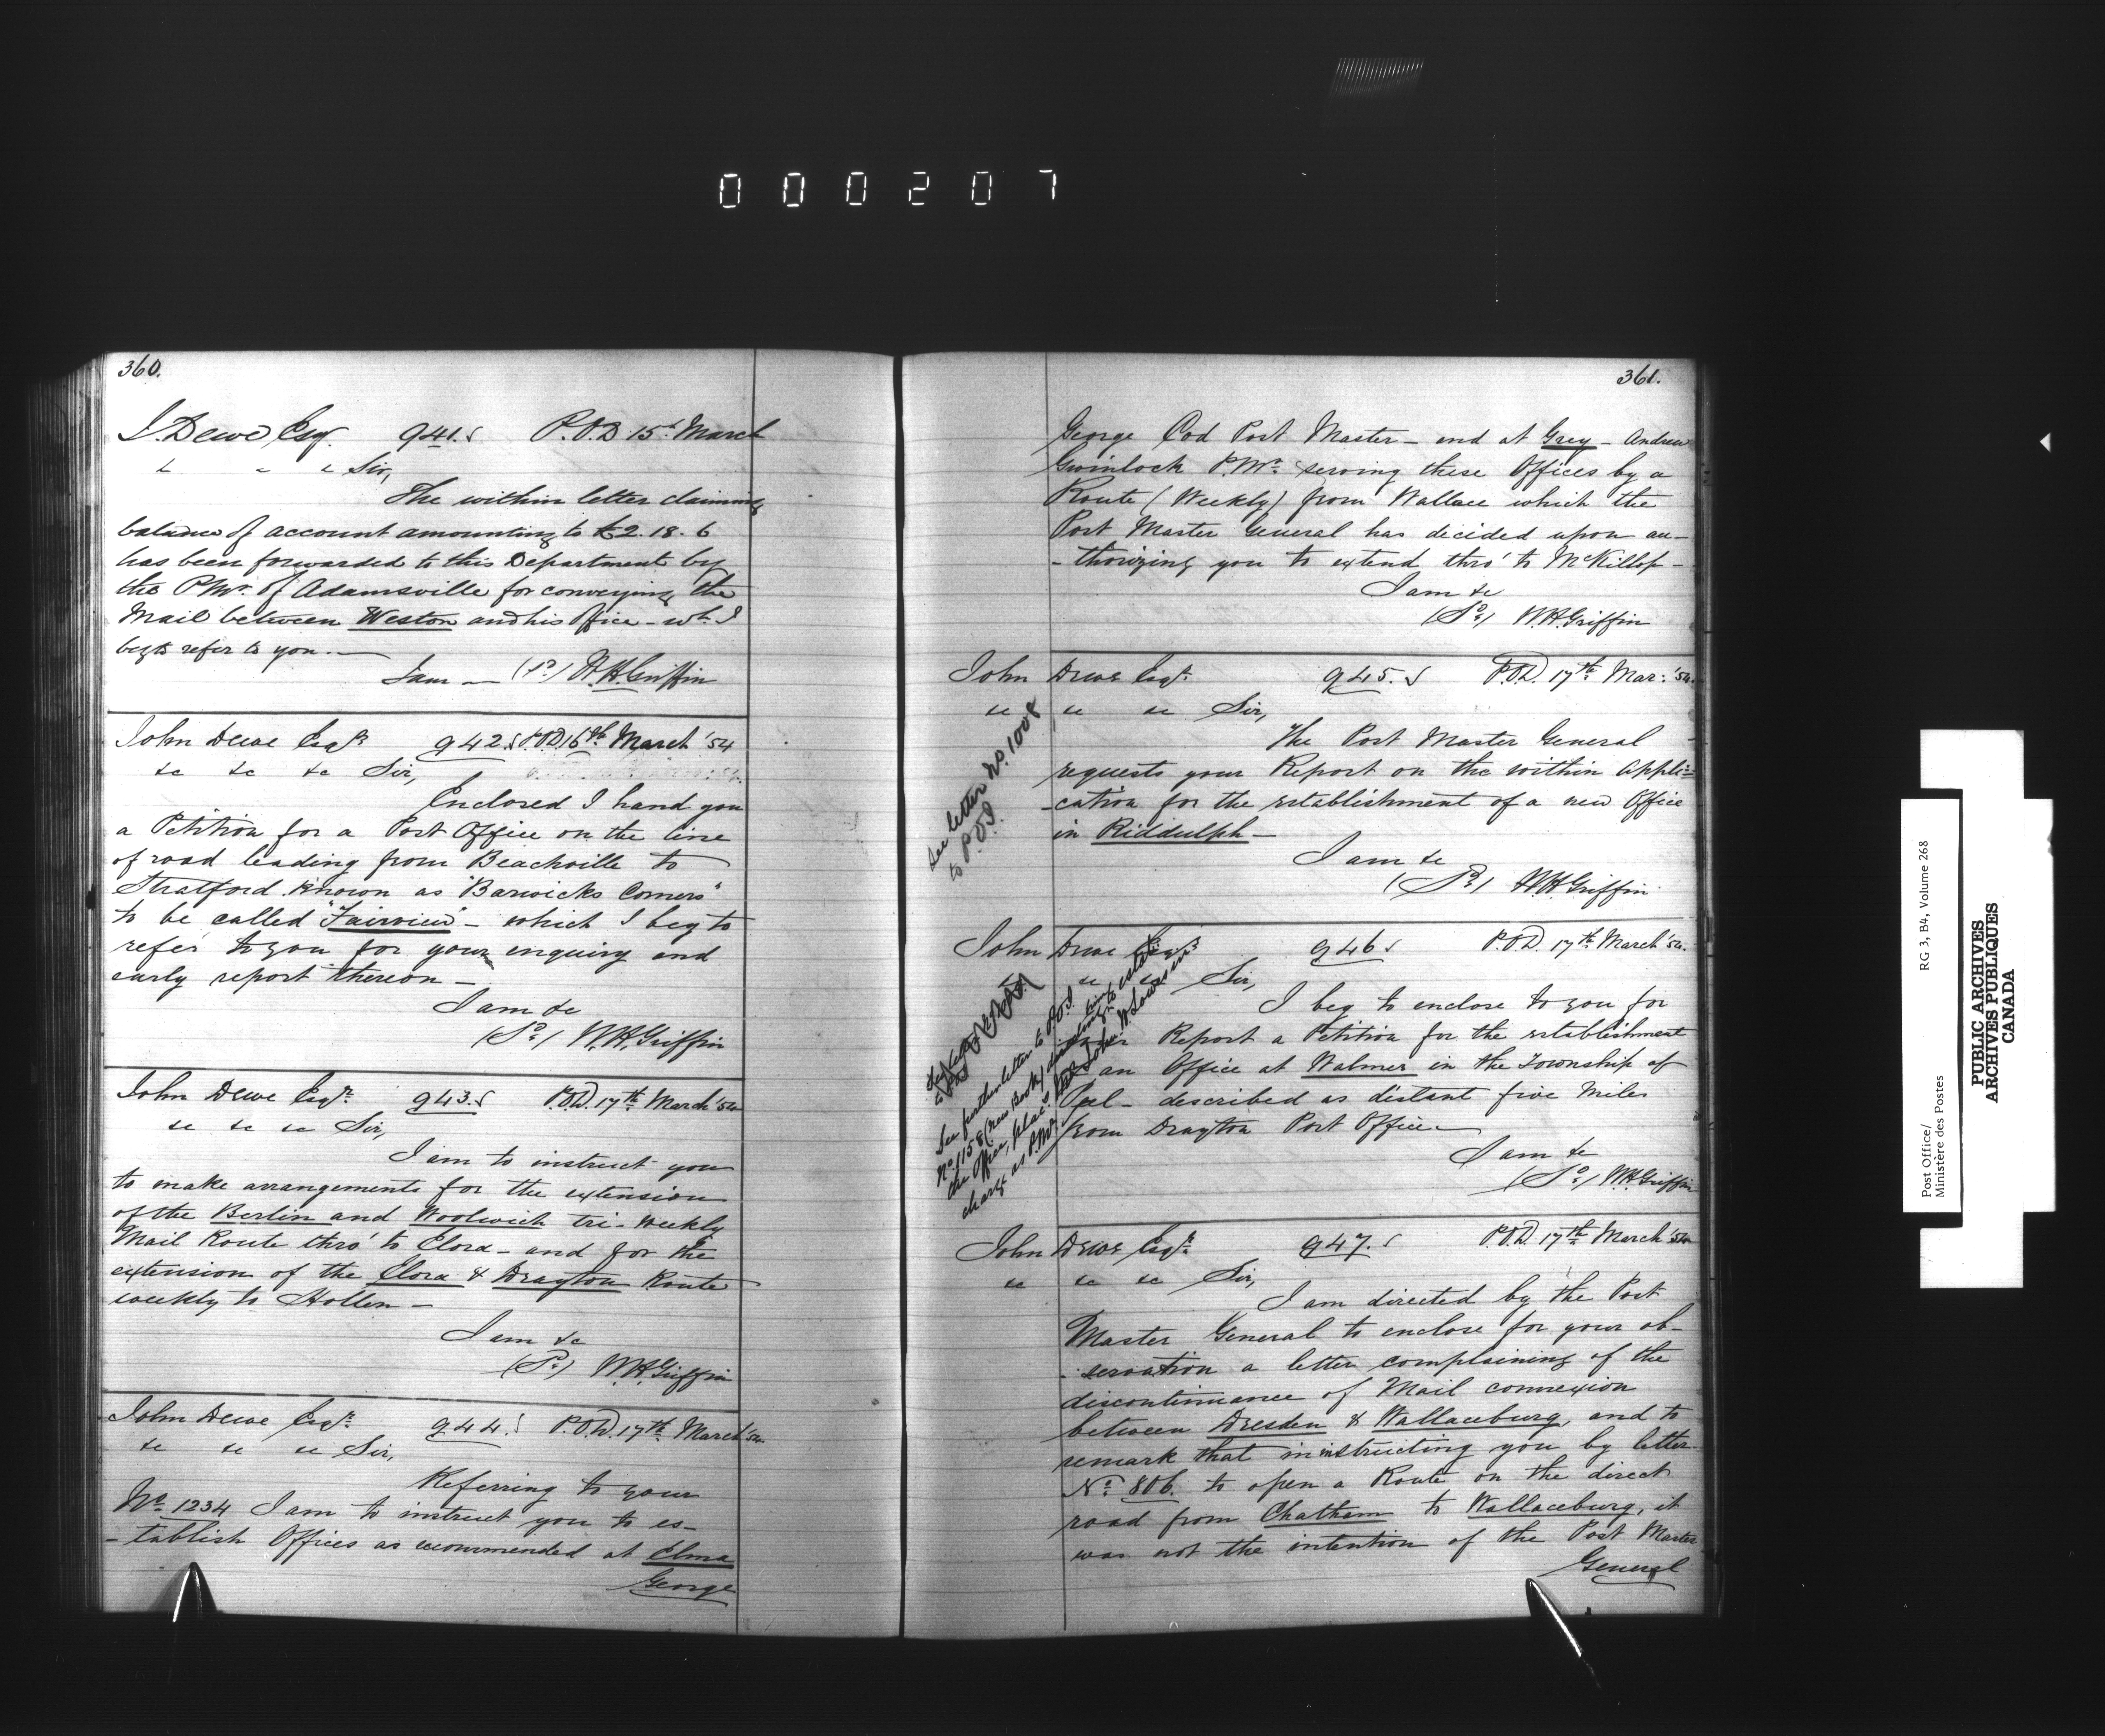 000207
360.
J. Dewe, Esq. 941. P.O.D. 15th March
" " " Sir,
The within letter claiming
balance of account amounting to £2.18.6
has been forwarded to this Department by
the P.Mr. of Adamsville for conveying the
Mail between Weston and his Office - wh. I
beg to refer to you. —
I am — (Sd) W.H. Griffin
John Dewe Esqr. 942. P.O.D. 16th March '54
&c &c &c Sir,
Enclosed I hand you
a Petition for a Post Office on the line
of road leading from Beachville to
Stratford known as "Barwicks Corners"
to be called "Fairview" - which I beg to
refer to you for your enquiry and
early report thereon —
I am &c
(Sd) W.H. Griffin
John Dewe Esqr. 943. P.O.D. 17th March '54
&c &c &c Sir,
I am to instruct you
to make arrangements for the extension
of the Berlin and Woolwich tri-weekly
Mail Route thro' to Elora - and for the
extension of the Elora & Drayton Route
weekly to Hollen —
I am &c
(Sd) W.H. Griffin
John Dewe Esqr. 944. P.O.D. 17th March '54
&c &c &c Sir,
Referring to your
No. 1234 I am to instruct you to es-
-tablish Offices as recommended at Elma
George
361.
George Cod Post Master - and at Grey - Andrew
P.Mr. serving these Offices by a
Route (Weekly) from Wallace which the
Post Master General has decided upon au-
-thorizing you to extend thro' to McKillop -
I am &c
(Sd) W.H. Griffin
John Dewe Esqr. 945. P.O.D. 17th Mar: '54.
&c &c &c Sir,
The Post Master General
requests your Report on the within Appli-
-cation for the establishment of a new Office
in Biddulph —
I am &c
(Sd) W.H. Griffin
See letter No. 1008
to P.O.I.
John Dewe Esqr. 946 P.O.D. 17th March '54.
&c &c Sir,
I beg to enclose to you for
your Report a Petition for the establishment
of an Office at Walmer in the Township of
Peel - described as distant five miles
from Drayton Post Office. —
I am &c
(Sd) W.H. Griffin
See further letter to P.O.I.
No. 1158 (new Book) directing him to establish
the Office, place
charge as P.Mr.
John Dewe Esqr. 947. P.O.D. 17th March '54
&c &c &c Sir,
I am directed by the Post
Master General to enclose for your ob-
-servation a letter complaining of the
discontinuance of Mail connexion
between Dresden & Wallaceburg, and to
remark that in instructing you by letter
No. 806. to open a Route on the direct
road from Chatham to Wallaceburg, it
was not the intention of the Post Master
General
Post Office/
Ministère des Postes
RG 3, B4, Volume 268
PUBLIC ARCHIVES
ARCHIVES PUBLIQUES
CANADA